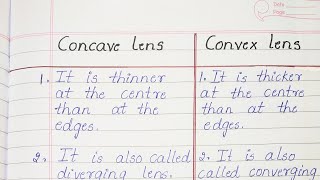 Date
Page
Concave lens
Convex lens
1. It is thinner
at the centre
than at the
edges.
1. It is thicker
at the centre
than at the
edges.
2. It is also called
diverging lens.
2. It is also
called converging